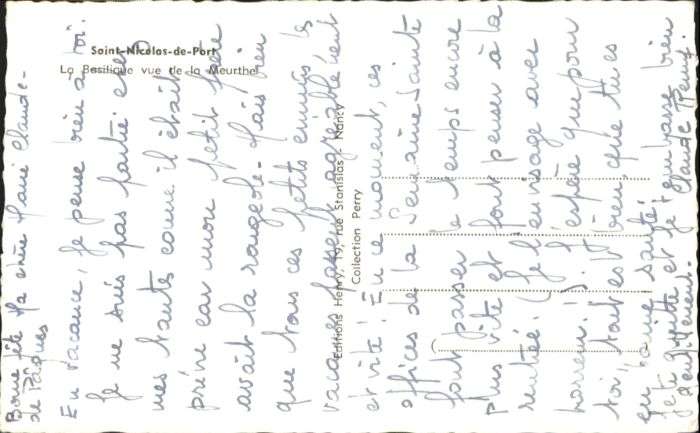 Saint-Nicolas-de-Port
La Basilique vue de la Meurthe
Editions Henry, 19, rue Stanislas - Nancy
Collection Perry
Bonne fête ma chère Marie Claude -
de Pâques
En vacance, je pense bien à toi.
Je ne suis pas partie chez
mes tantes comme il était
prévu car mon petit frère
avait la rougeole - Mais bien
que tous ces petits ennuis les
vacances passent agréablement
et vite ! En ce moment, ces
offices de la Semaine Sainte
font passer le temps encore
plus vite et font penser à la
rentrée. (Je l'envisage avec
horreur !). J'espère que pour
toi, tout est bien, que tu es
en bonne santé.
Je te quitte et je t'embrasse bien
Claude